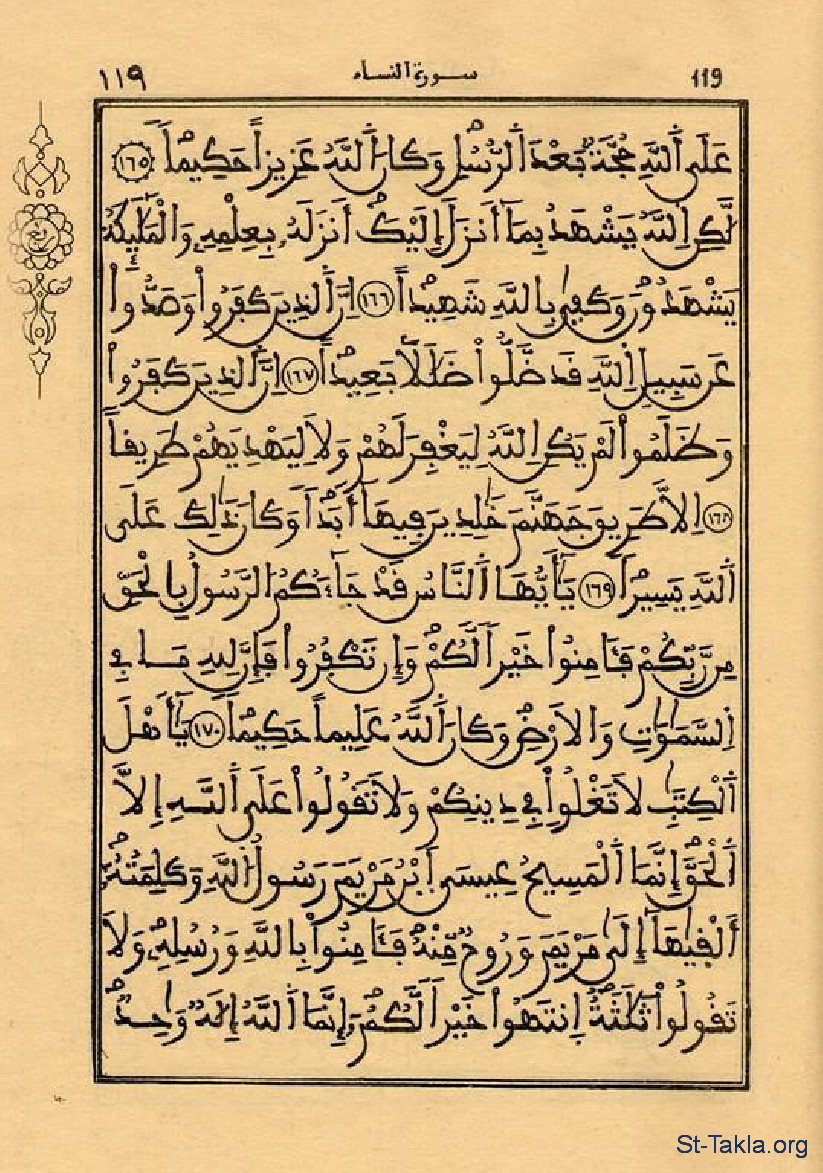 ١١٩ سورة النساء 119
عَلَى اَ۬للَّهِ حُجَّةُۢ بَعْدَ اَ۬لرُّسُلِۖ وَكَانَ اَ۬للَّهُ عَزِيزاً حَكِيماًۖ ١٦٥
لَّكِنِ اِ۬للَّهُ يَشْهَدُ بِمَآ أَنزَلَ إِلَيْكَۖ أَنزَلَهُۥ بِعِلْمِهِۦ وَالْمَلَٰٓئِكَةُ
يَشْهَدُونَۖ وَكَف۪ىٰ بِاللَّهِ شَهِيداًۖ ١٦٦ اِنَّ اَ۬لذِينَ كَفَرُواْ وَصَدُّواْ
عَن سَبِيلِ اِ۬للَّهِ قَد ضَّلُّواْ ضَلَٰلاَۢ بَعِيداًۖ ١٦٧ اِنَّ اَ۬لذِينَ كَفَرُواْ
وَظَلَمُواْ لَمْ يَكُنِ اِ۬للَّهُ لِيَغْفِرَ لَهُمْ وَلاَ لِيَهْدِيَهُمْ طَرِيقاً
١٦٨ اِلاَّ طَرِيقَ جَهَنَّمَ خَٰلِدِينَ فِيهَآ أَبَداًۖ وَكَانَ ذَٰلِكَ عَلَى
اَ۬للَّهِ يَسِيراًۖ ١٦٩ يَٰٓأَيُّهَا اَ۬لنَّاسُ قَدْ جَآءَكُمُ الرَّسُولُ بِالْحَقِّ
مِن رَّبِّكُمْ فَـَٔامِنُواْ خَيْراً لَّكُمْۖ وَإِن تَكْفُرُواْ فَإِنَّ لِلهِ مَا فِے
اِ۬لسَّمَٰوَٰتِ وَالَارْضِۖ وَكَانَ اَ۬للَّهُ عَلِيماً حَكِيماًۖ ١٧٠ يَٰٓأَهْلَ
اَ۬لْكِتَٰبِ لاَ تَغْلُواْ فِے دِينِكُمْ وَلاَ تَقُولُواْ عَلَى اَ۬للَّهِ إِلاَّ
اَ۬لْحَقَّۖ إِنَّمَا اَ۬لْمَسِيحُ عِيسَى اَ۪بْنُ مَرْيَمَ رَسُولُ اُ۬للَّهِ وَكَلِمَتُهُۥٓ
أَلْق۪يٰهَآ إِلَىٰ مَرْيَمَ وَرُوحٌ مِّنْهُۖ فَـَٔامِنُواْ بِاللَّهِ وَرُسُلِهِۦۖ وَلاَ
تَقُولُواْ ثَلَٰثَةٌۖ اِنتَهُواْ خَيْراً لَّكُمُۥٓۖ إِنَّمَا اَ۬للَّهُ إِلَٰهٌ وَٰحِدٌۖ
ربع
St-Takla.org